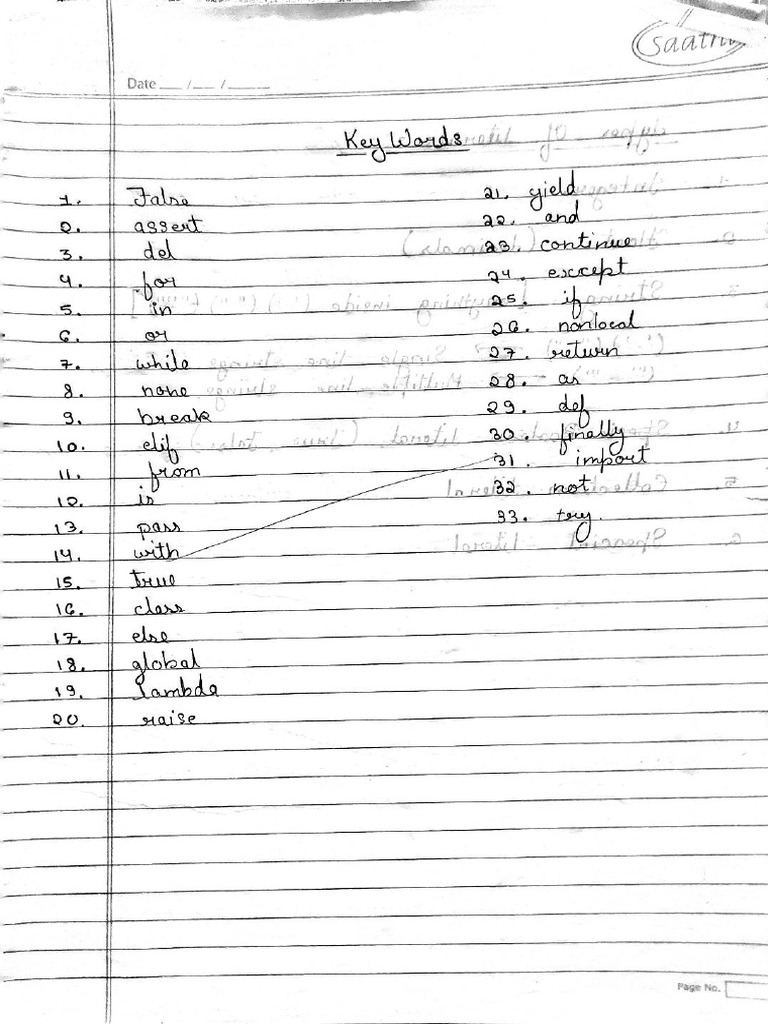 Saathi
Date __/__/____
Key Words
1. False
2. assert
3. del
4. for
5. in
6. or
7. while
8. none
9. break
10. elif
11. from
12. is
13. pass
14. with
15. true
16. class
17. else
18. global
19. lambda
20. raise
21. yield
22. and
23. continue
24. except
25. if
26. nonlocal
27. return
28. as
29. def
30. finally
31. import
32. not
33. try.
Page No.